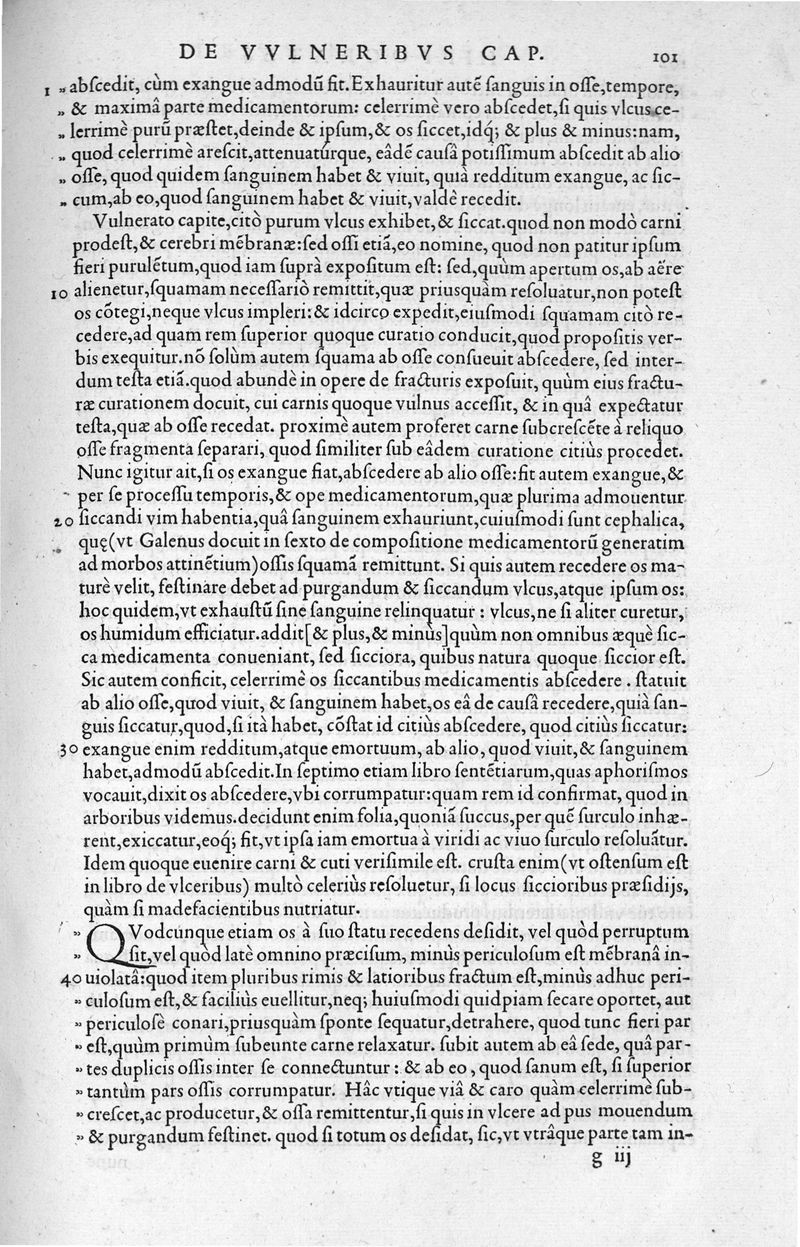 DE VVLNERIBVS CAP. 101
1 „ abſcedit, cùm exangue admodũ fit. Exhauritur autẽ ſanguis in oſſe, tempore,
„ & maximâ parte medicamentorum: celerrimè vero abſcedet, ſi quis vlcus ce-
„ lerrimè purũ præſtet, deinde & ipſum, & os ſiccet, idq́; & plus & minus: nam,
„ quod celerrimè areſcit, attenuatúrque, eâdẽ cauſâ potiſſimum abſcedit ab alio
„ oſſe, quod quidem ſanguinem habet & viuit, quià redditum exangue, ac ſic-
„ cum, ab eo, quod ſanguinem habet & viuit, valdè recedit.
Vulnerato capite, citò purum vlcus exhibet, & ſiccat. quod non modò carni
prodeſt, & cerebri mẽbranæ: ſed oſſi etiã, eo nomine, quod non patitur ipſum
fieri purulẽtum, quod iam ſuprà expoſitum eſt: ſed, quùm apertum os, ab aëre
10 alienetur, ſquamam neceſſariò remittit, quæ priusquàm reſoluatur, non poteſt
os cõtegi, neque vlcus impleri: & idcirco expedit, eiuſmodi ſquamam citò re-
cedere, ad quam rem ſuperior quoque curatio conducit, quod propoſitis ver-
bis exequitur. nõ ſolùm autem ſquama ab oſſe conſueuit abſcedere, ſed inter-
dum teſta etiã. quod abundè in opere de fracturis expoſuit, quùm eius fractu-
ræ curationem docuit, cui carnis quoque vulnus acceſſit, & in quâ expectatur
teſta, quæ ab oſſe recedat. proximè autem proferet carne ſubcreſcẽte à reliquo
oſſe fragmenta ſeparari, quod ſimiliter ſub eâdem curatione citiùs procedet.
Nunc igitur ait, ſi os exangue fiat, abſcedere ab alio oſſe: fit autem exangue, &
per ſe proceſſu temporis, & ope medicamentorum, quæ plurima admouentur
20 ſiccandi vim habentia, quâ ſanguinem exhauriunt, cuiuſmodi ſunt cephalica,
quę (vt Galenus docuit in ſexto de compoſitione medicamentorũ generatim
ad morbos attinẽtium) oſſis ſquamã remittunt. Si quis autem recedere os ma-
turè velit, feſtinare debet ad purgandum & ſiccandum vlcus, atque ipſum os:
hoc quidem, vt exhauſtũ ſine ſanguine relinquatur: vlcus, ne ſi aliter curetur,
os humidum efficiatur. addit [& plus, & minùs] quùm non omnibus æquè ſic-
ca medicamenta conueniant, ſed ſicciora, quibus natura quoque ſiccior eſt.
Sic autem conficit, celerrimè os ſiccantibus medicamentis abſcedere. ſtatuit
ab alio oſſe, quod viuit, & ſanguinem habet, os eâ de cauſâ recedere, quià ſan-
guis ſiccatur, quod, ſi ità habet, cõſtat id citiùs abſcedere, quod citiùs ſiccatur:
30 exangue enim redditum, atque emortuum, ab alio, quod viuit, & ſanguinem
habet, admodũ abſcedit. In ſeptimo etiam libro ſentẽtiarum, quas aphoriſmos
vocauit, dixit os abſcedere, vbi corrumpatur: quam rem id confirmat, quod in
arboribus videmus. decidunt enim folia, quoniã ſuccus, per quẽ ſurculo inhæ-
rent, exiccatur, eoq́; fit, vt ipſa iam emortua à viridi ac viuo ſurculo reſoluãtur.
Idem quoque euenire carni & cuti veriſimile eſt. cruſta enim (vt oſtenſum eſt
in libro de vlceribus) multò celeriùs reſoluetur, ſi locus ſiccioribus præſidijs,
quàm ſi madefacientibus nutriatur.
„ QVodcunque etiam os à ſuo ſtatu recedens deſidit, vel quòd perruptum
„ ſit, vel quòd latè omnino præciſum, minùs periculoſum eſt mẽbranâ in-
40 uiolatâ: quod item pluribus rimis & latioribus fractum eſt, minùs adhuc peri-
„ culoſum eſt, & faciliùs euellitur, neq; huiuſmodi quidpiam ſecare oportet, aut
„ periculoſè conari, priusquàm ſponte ſequatur, detrahere, quod tunc fieri par
„ eſt, quùm primùm ſubeunte carne relaxatur. ſubit autem ab eâ ſede, quâ par-
„ tes duplicis oſſis inter ſe connectuntur: & ab eo, quod ſanum eſt, ſi ſuperior
„ tantùm pars oſſis corrumpatur. Hâc vtique viâ & caro quàm celerrimè ſub-
„ creſcet, ac producetur, & oſſa remittentur, ſi quis in vlcere ad pus mouendum
„ & purgandum feſtinet. quod ſi totum os deſidat, ſic, vt vtrâque parte tam in-
g iij